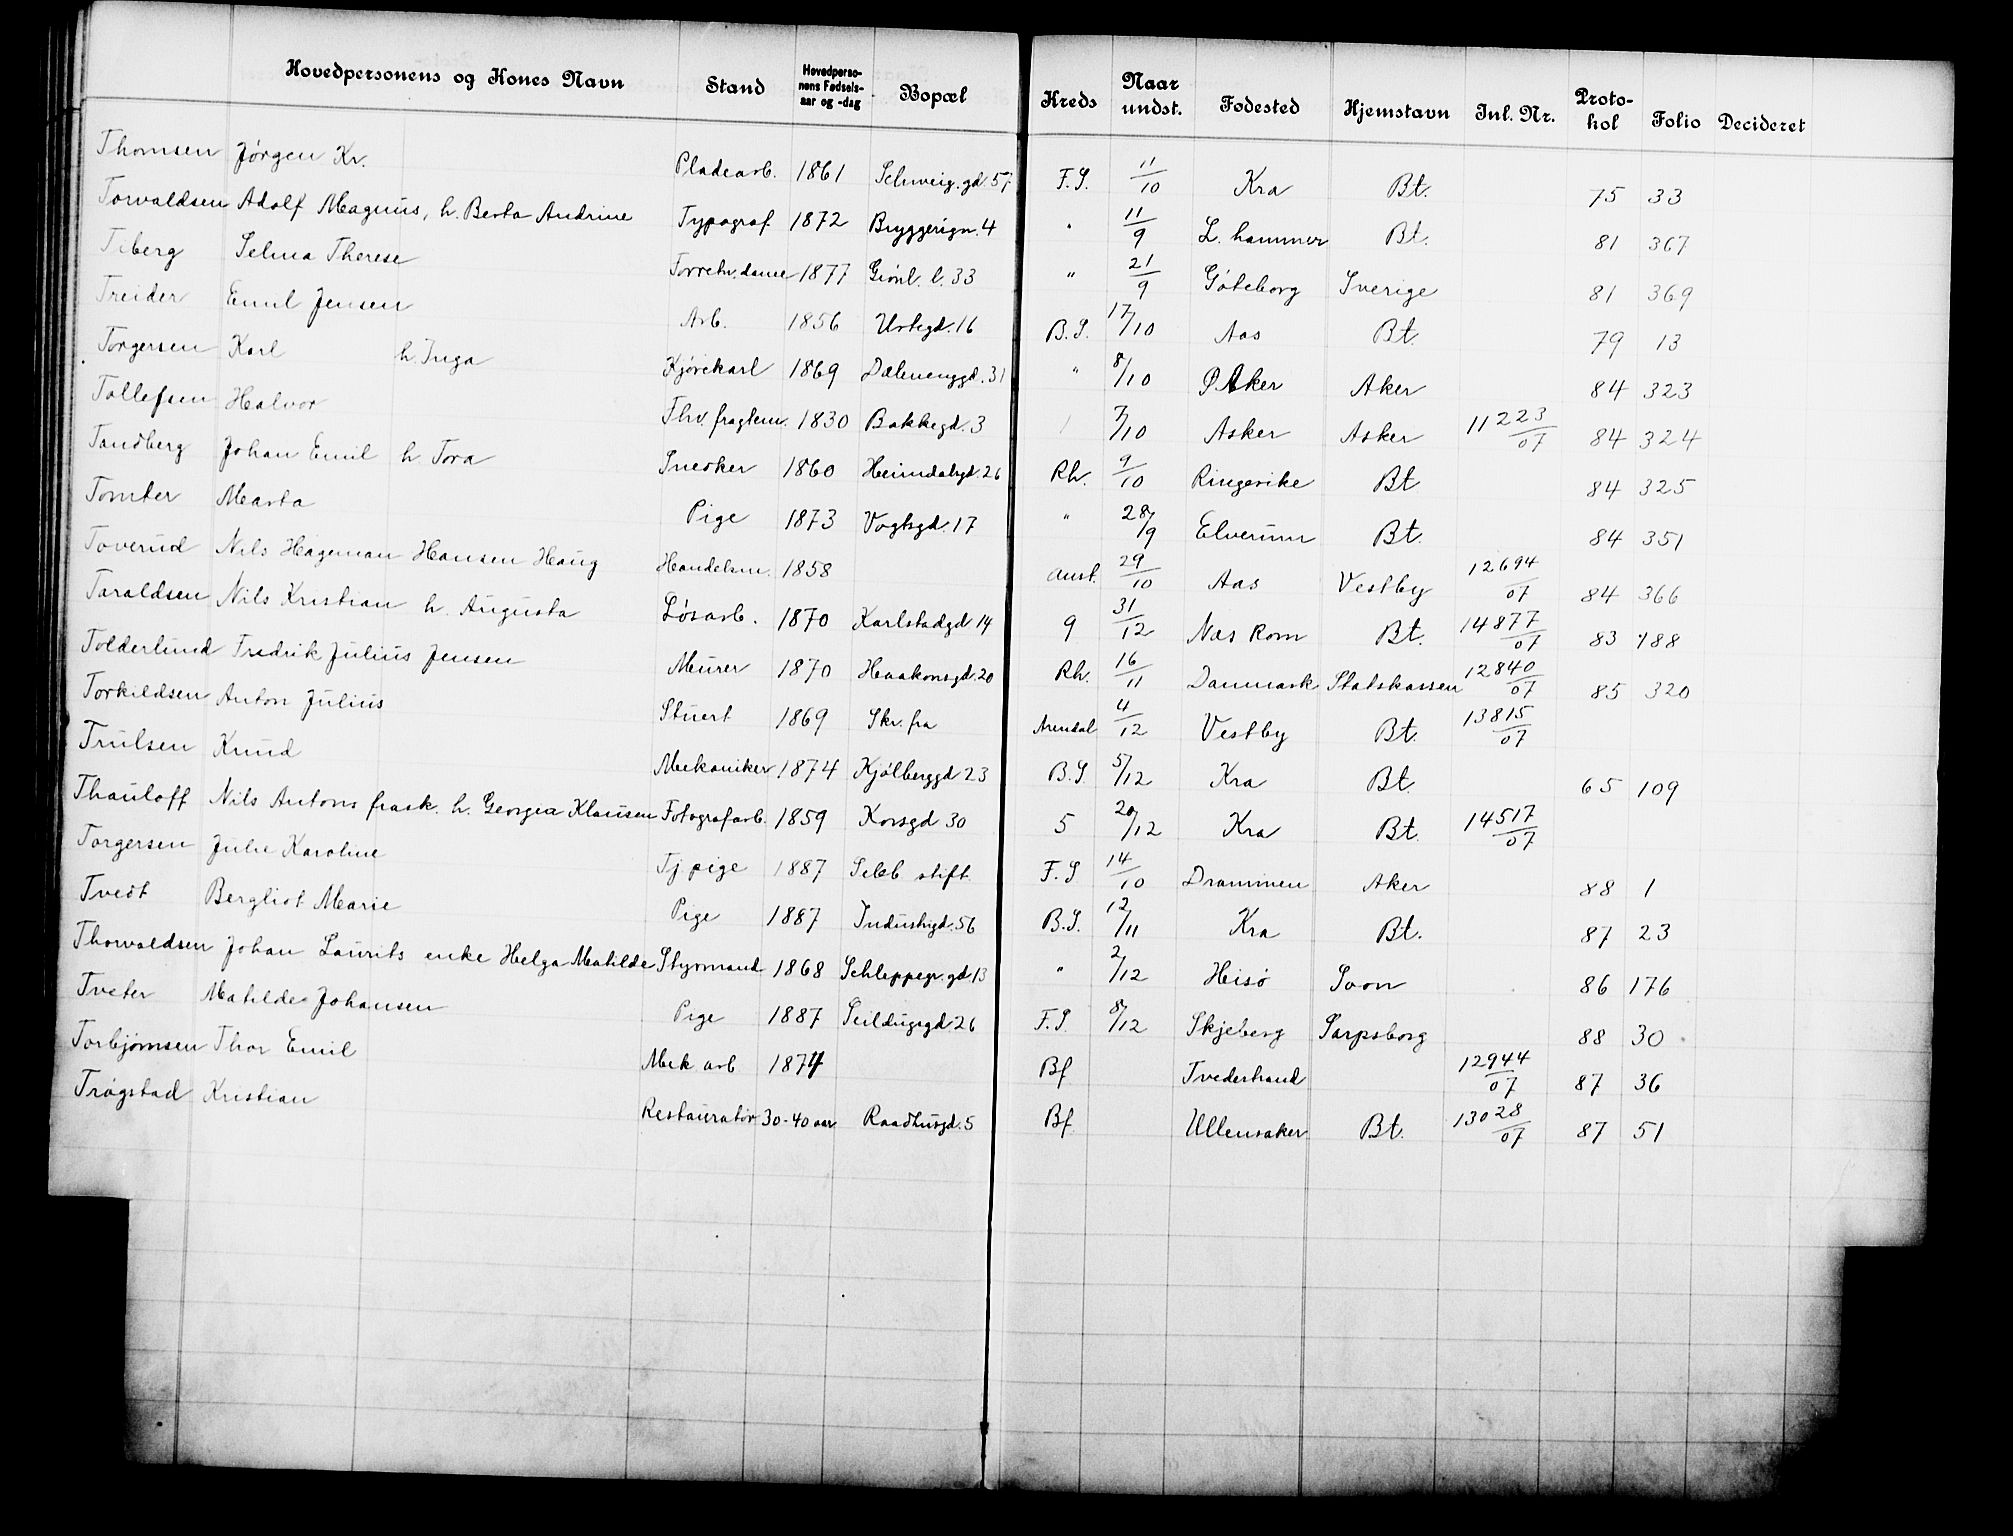 Hovedpersonens og Kones Navn | Stand | Hovedpersonens Fødselsaar og -dag | Bopæl | Kreds | Naar undst. | Fødested | Hjemstavn | Inl. Nr. | Protokol | Folio | Decideret
Thomsen Jørgen Kr. | Pladearb. | 1861 | Schweig.gd. 57 | F.S. | 11/10 | Kra | Bt. | | 75 | 33
Torvaldsen Adolf Magnus, h. Berta Andrine | Typograf | 1872 | Bryggerign. 4 | " | 11/9 | L. hammer | Bt. | | 81 | 367
Tiberg Selma Therese | Forretn.dame | 1877 | Grönl. l. 33 | " | 21/9 | Göteborg | Sverige | | 81 | 369
Treider Emil Jensen | Arb. | 1856 | Urtegd. 16 | B.S. | 17/10 | Aas | Bt. | | 79 | 13
Torgersen Karl h. Inga | Kjørekarl | 1869 | Dælenenggd. 31 | " | 8/10 | Aker | Aker | | 84 | 323
Tollefsen Halvor | Thv. fragtem. | 1830 | Bakkegd. 3 | | 7/10 | Asker | Asker | 11223/07 | 84 | 324
Tandberg Johan Emil h Tora | Snedker | 1860 | Heimdalsgd. 26 | Rh. | 9/10 | Ringerike | Bt | | 84 | 325
Tomter Marta | Pige | 1873 | Vogtsgd. 17 | " | 28/9 | Elverum | Bt. | | 84 | 351
Toverud Nils Hageman Hansen Haug | Handelsm. | 1858 | | Anst. | 29/10 | Aas | Vestby | 12694/07 | 84 | 366
Taraldsen Nils Kristian h. Augusta | Løsarb. | 1870 | Karlstadgd 14 | 9 | 31/12 | Nes Rom | Bt. | 14877/07 | 83 | 188
Tolderlund Fredrik Julius Jensen | Murer | 1870 | Haakonsgd. 20 | Rh. | 16/11 | Danmark | Statskassen | 12840/07 | 85 | 320
Torkildsen Anton Julius | Stuert | 1869 | Skr. fra | Arendal | 4/12 | Vestby | Bt. | 13815/07
Trulsen Knud | Mekaniker | 1874 | Kjølberggd 23 | B.S. | 5/12 | Kra | Bt. | | 65 | 109
Thauloff Nils Antons frask. h. Georgea Klausen | Fotografarb. | 1859 | Korsgd 30 | 5 | 20/12 | Kra | Bt. | 14517/07
Torgersen Julie Karoline | Tj. pige | 1887 | Sebb. stift. | F.S | 14/10 | Drammen | Aker | | 88 | 1
Tvedt Bergliot Marie | Pige | 1887 | Industrigd. 56 | B.S. | 12/11 | Kra | Bt. | | 87 | 23
Thorvaldsen Johan Laurits enke Helga Matilde | Styrmand | 1868 | Schleppegr.gd 13 | " | 2/12 | Heisø | Soon | | 86 | 176
Tveter Matilde Johansen | Pige | 1887 | Seildugsgd 26 | F.S. | 8/12 | Skjeberg | Sarpsborg | | 88 | 30
Torbjørnsen Thor Emil | Mek arb | 1874 | | Bf | | Tvedestrand | | 12944/07 | 87 | 36
Trøgstad Kristian | Restauratør | 30-40 aar | Raadhusgd. 5 | Bf | | Ullensaker | Bt. | 13028/07 | 87 | 51